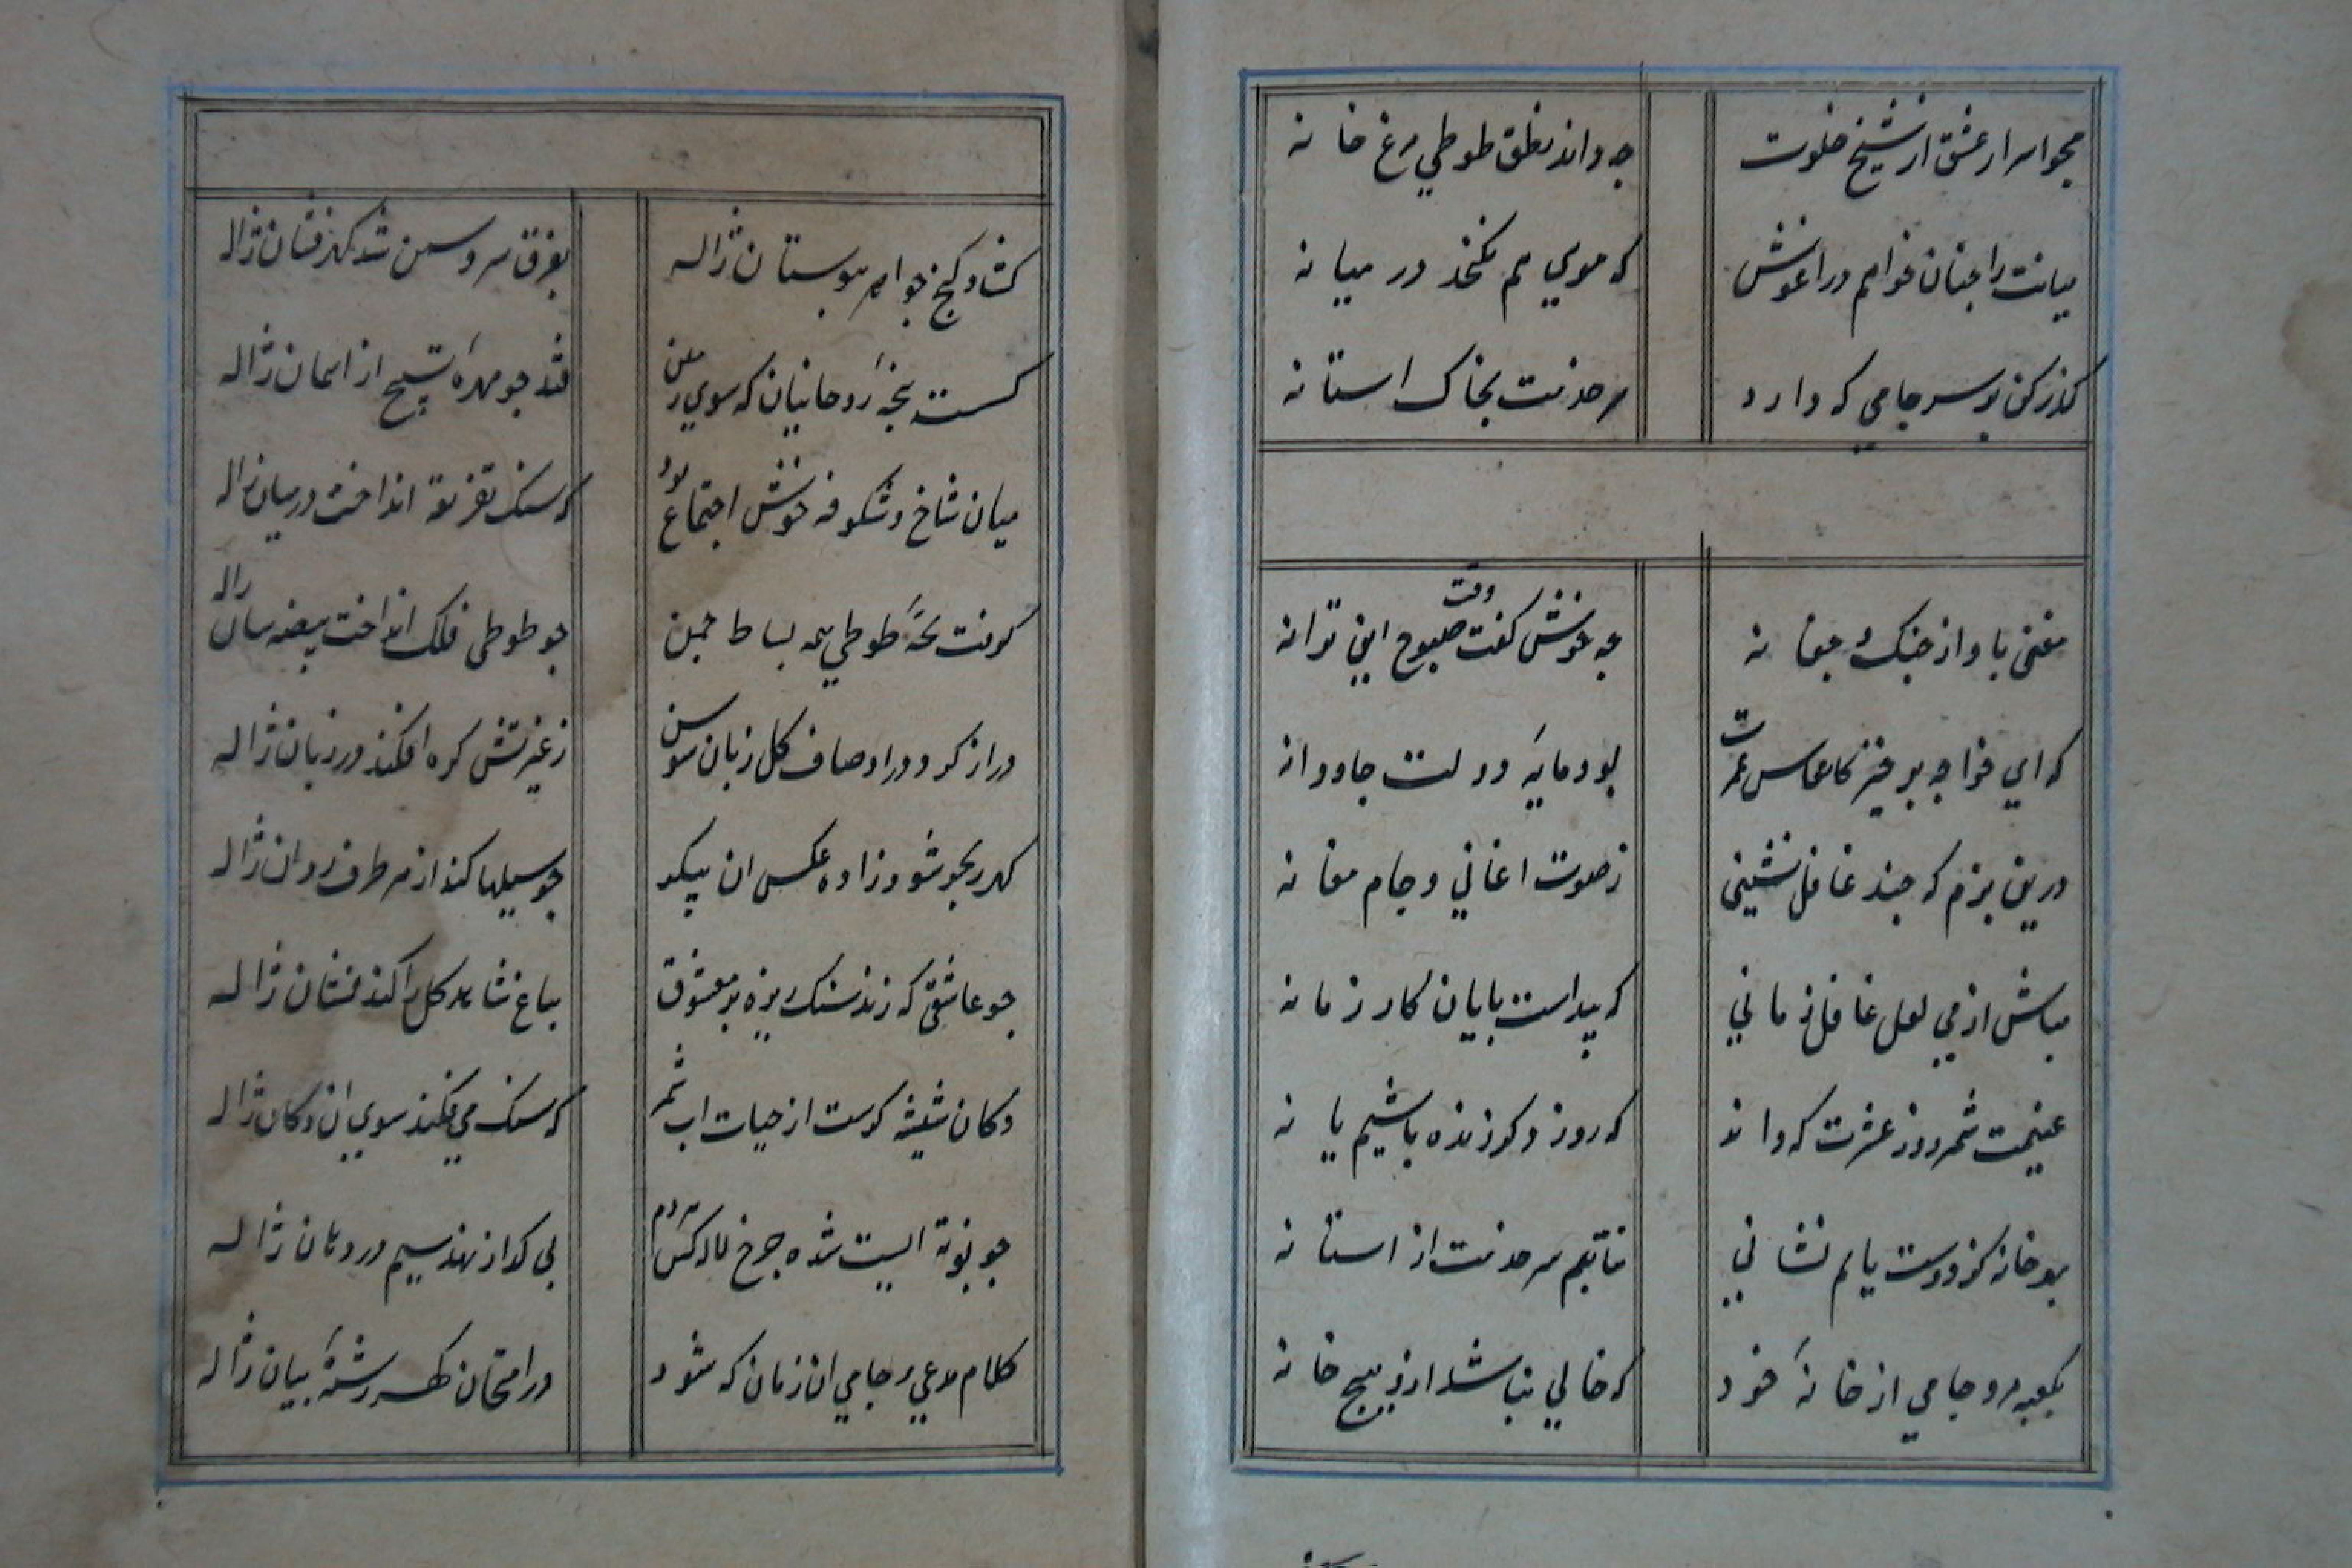 مجو اسرار عشق از شیخ خلوت
چه داند نطق طوطی مرغ خانه
میانت را چنان خواهم در اغوش
که موي هم نکنجد در میانه
کذر کن بر سر جامي که دارد
سر خدمت بخاک استانه
مغنی باواز چنک و چغانه
چه خوش کفت وقت صبوح این ترانه
که اي خواجه برخیز کانفاس عمرت
بود مایهٔ دولت جاودانه
درین بزم که چند غافل نشینی
ز صوت اغاني و جام مغانه
مباش از مي لعل غافل زماني
که پیداست پایان کار زمانه
غنیمت شمر روز عشرت که داند
که روز دکر زنده باشیم یا نه
بهر خانه کز دوست یابم نشاني
نتابم سر خدمت از استانه
بکعبه مرو جامي از خانهٔ خود
که خالي نباشد ازو هیچ خانه
کشاد کنج جواهر ببوستان ژاله
بفرق سرو و سمن شد کهرفشان ژاله
کسست سبحهٔ روحانیان که سوي زمین
فتد چو مهرهٔ تسبیح از اسمان ژاله
میان شاخ و شکوفه خوش اجتماع بود
که سنک تفرقه انداخت در میان ژاله
کرفت بچهٔ طوطي همه بساط چمن
چو طوطی فلک انداخت بیضه سان ژاله
دراز کرد در اوصاف کل زبان سوسن
ز غیرتش کره افکند در زبان ژاله
کهر بجو شود زاده عکس ان پیکر
چو سیلها کند از هر طرف روان ژاله
چو عاشقی که زند سنک ریزه بر معشوق
بباغ شاهد کل را کند نشان ژاله
دکان شیشه کرست از حباب اب شمر
که سنک مي فکند سوي ان دکان ژاله
چو بوتهٔ ایست شده چرخ لاله کش هر دم
پي کداز نهد سیم در دهان ژاله
کلام مدعي و جامي ان زمان که شود
در امتحان کهر رشتهٔ بیان ژاله